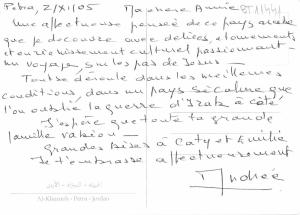 Petra, 2/XI/05 Ma chère Annie
Une affectueuse pensée de ce pays arabe
que je découvre avec délices, étonnements
et enrichissement culturel passionnant -
un voyage sur les pas de Jésus -
Tout se déroule dans les meilleures
conditions, dans un pays sécalme que
l'on oublie la guerre d'Irak à côté
J'espère que toute ta grande
famille va bien -
Grandes bises à Caty et Emilie
Je t'embrasse affectueusement
Andrée
Al-Khazneh - Petra - Jordan